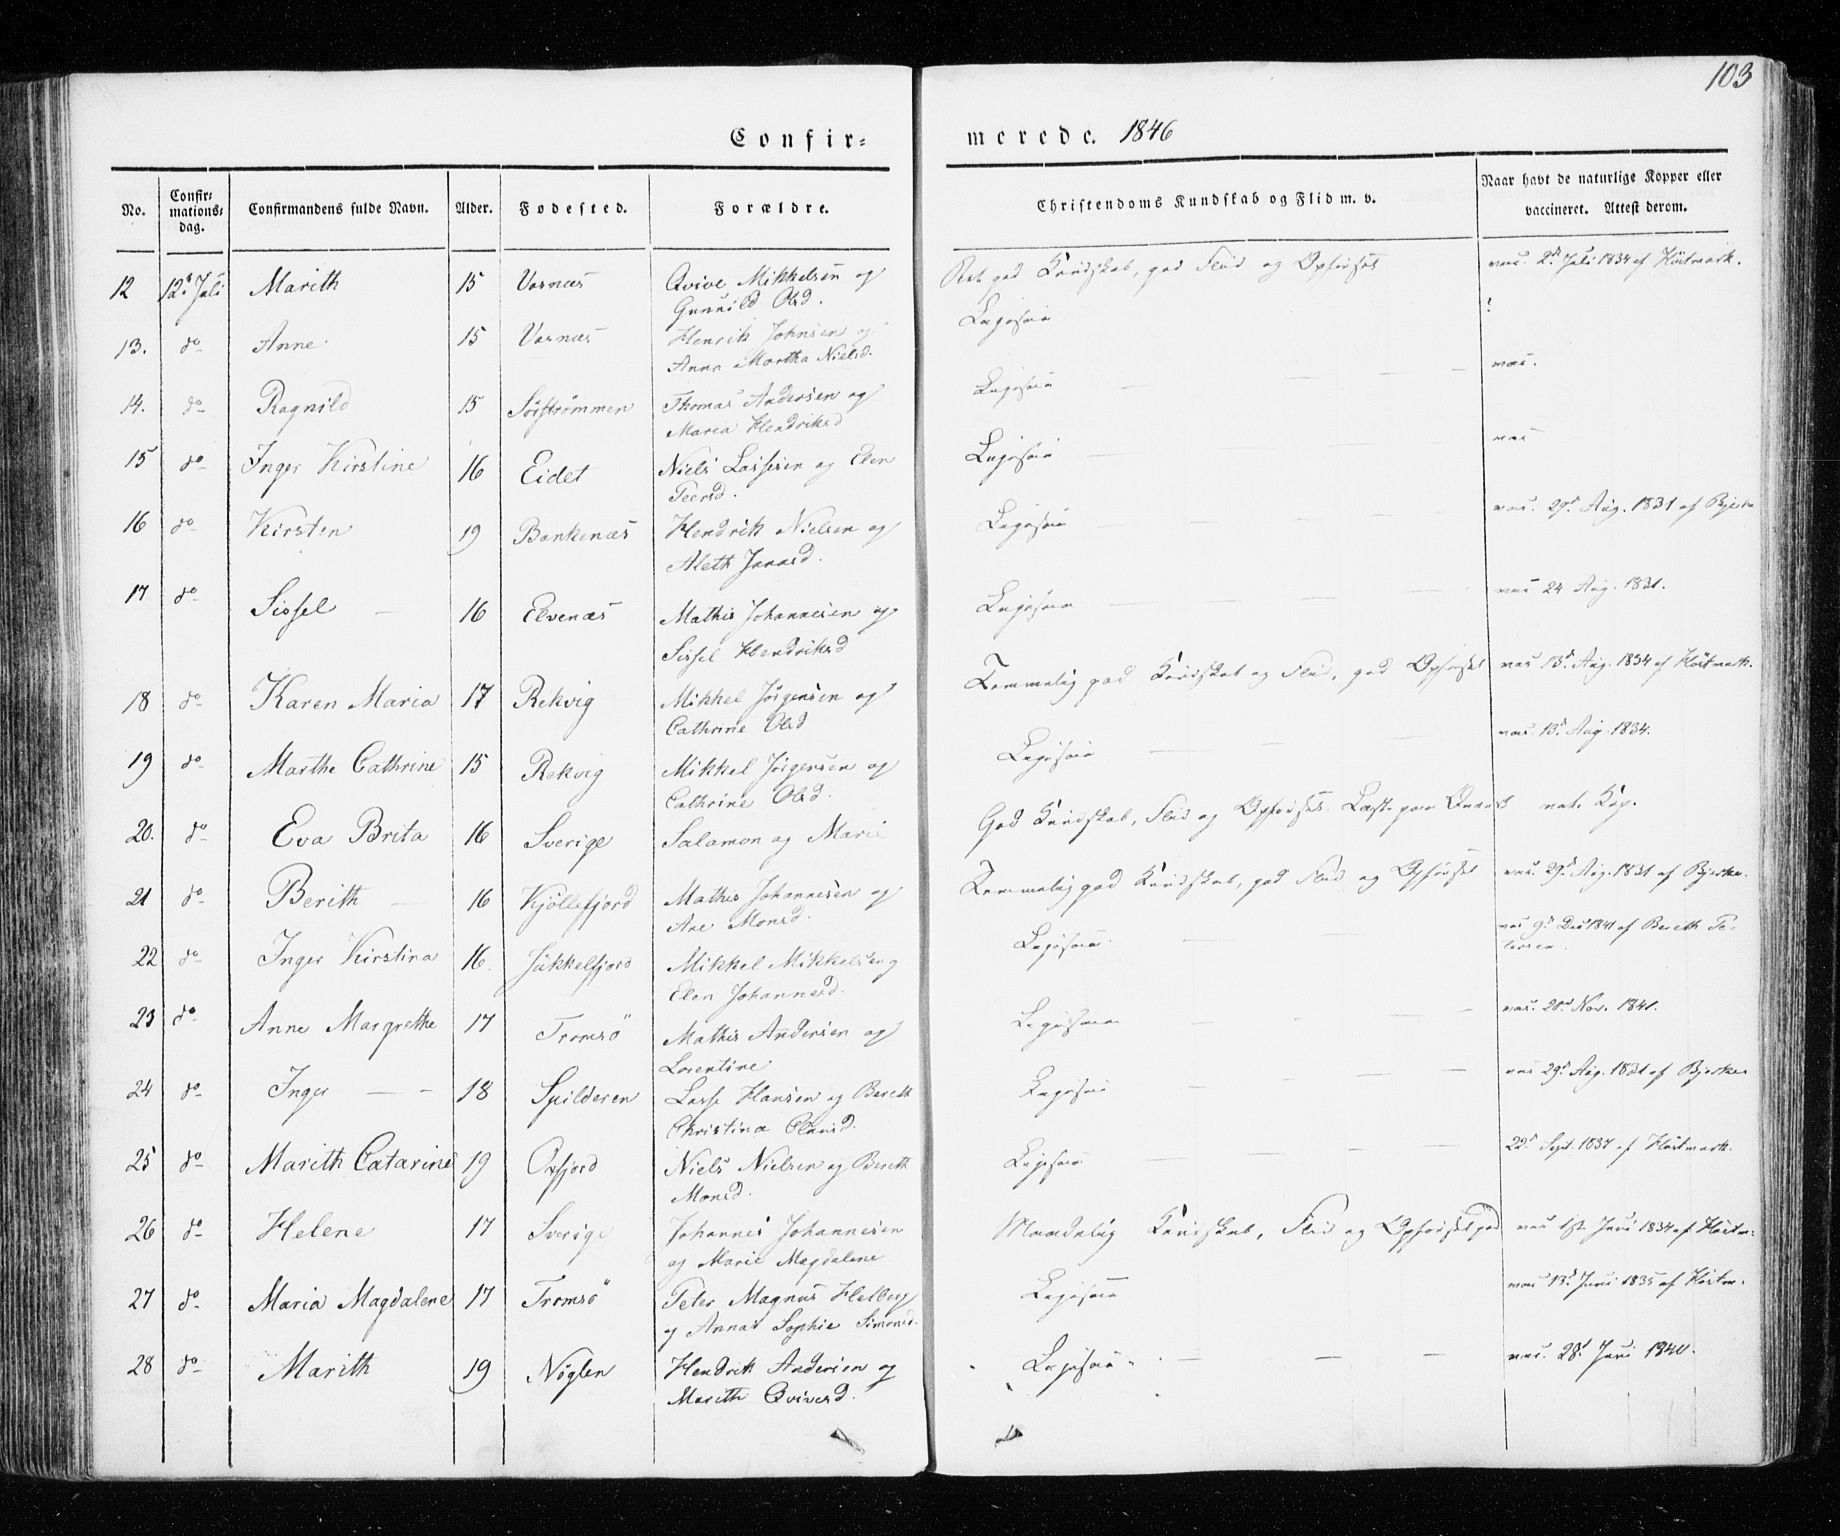 103
Confir=
merede. 1846
No.
Confir=
mations=
dag.
Confirmandens fulde Navn.
Alder.
Fødested.
Forældre.
Christendoms Kundskab og Flid m. v.
Naar havt de naturlige Kopper eller
vaccineret. Attest derom.
12 12t Juli Marith 15 Vasnæs Qvive Mikkelsen og Ret god Kundskab, god Flid og Opførsel vac. 2d Juli 1834 af Höitmark.
Gunnild Olsd.
13. do Anne 15 Vasnæs Henrik Johnsen og Ligesaa ?
Anna Martha Nielsd.
14. do Ragnild 15 Sörströmmen Thomas Andersen og Ligesaa — — — vac.
Maria Hendriksd
15 do Inger Kirstine 16 Eidet Niels Lassesen og Elen Ligesaa — — vac
Peersd.
16 do Kirsten 19 Bankenæs Hendrik Nielsen og Ligesaa vac. 29d Aug. 1831 af Bjerke
Aleth Jonasd.
17 do Sissel — 16 Elvenæs Mathis Johannesen og Ligesaa — — — vac 24 Aug. 1831.
Sissel Hendriksd
18 do Karen Maria 17 Rekvig Mikkel Jörgensen og Temmelig god Kundskab og Flid, god Opførsel vac 13d Aug. 1834 af Höitmark.
Cathrine Olsd
19 do Marthe Cathrine 15 Rekvig Mikkel Jörgensen og Ligesaa — — — vac. 13d Aug. 1834.
Cathrine Olsd.
20. do Eva Brita 16 Sverige Salamon og Marie God Kundskab, Flid og Opførsel. Læste paa Qvænsk nat. Kop.
21 do Berith — 16 Kjöllefjord Mathis Johannesen og Temmelig god Kundskab, god Flid og Opførsel vac. 29d Aug. 1831 af Bjerke.
Ane Monsd.
22 do Inger Kirstina 16. Jökkelfjord Mikkel Mikkelsen og Ligesaa. — — vac 9d Dec 1841 af Bereth Pe-
Elen Johannesd. tersen.
23 do Anne Margrethe 17 Tromsö Mathis Andersen og Ligesaa — — — vac. 28d Nov. 1841.
Lorentine
24 do Inger — - 18 Spilderen Lasse Hansen og Bereth Ligesaa — — — vac 29d Aug. 1831 af Bjerke
Christina Olavisd.
25 do Marith Catarine 19 Oxfjord Niels Nielsen og Bereth Ligesaa — — — 22d Sept. 1837 af Höitmark.
Monsd.
26 do Helene 17 Sverige Johannes Johannesen Maadelig Kundskab, Flid og Opførsel god vac 1st Juni 1834 af Höitm:
og Marie Magdalene
27 do Maria Magdalene 17 Tromsö Peter Magnus Helberg Ligesaa vac 13d Juni 1835 af Höitm.
og Anna Sophie Simonsd.
28 do Marith 19 Nöglen Hendrik Andersen og Ligesaa — — — vac. 28d Juni 1840.
Marith Qvivesd.